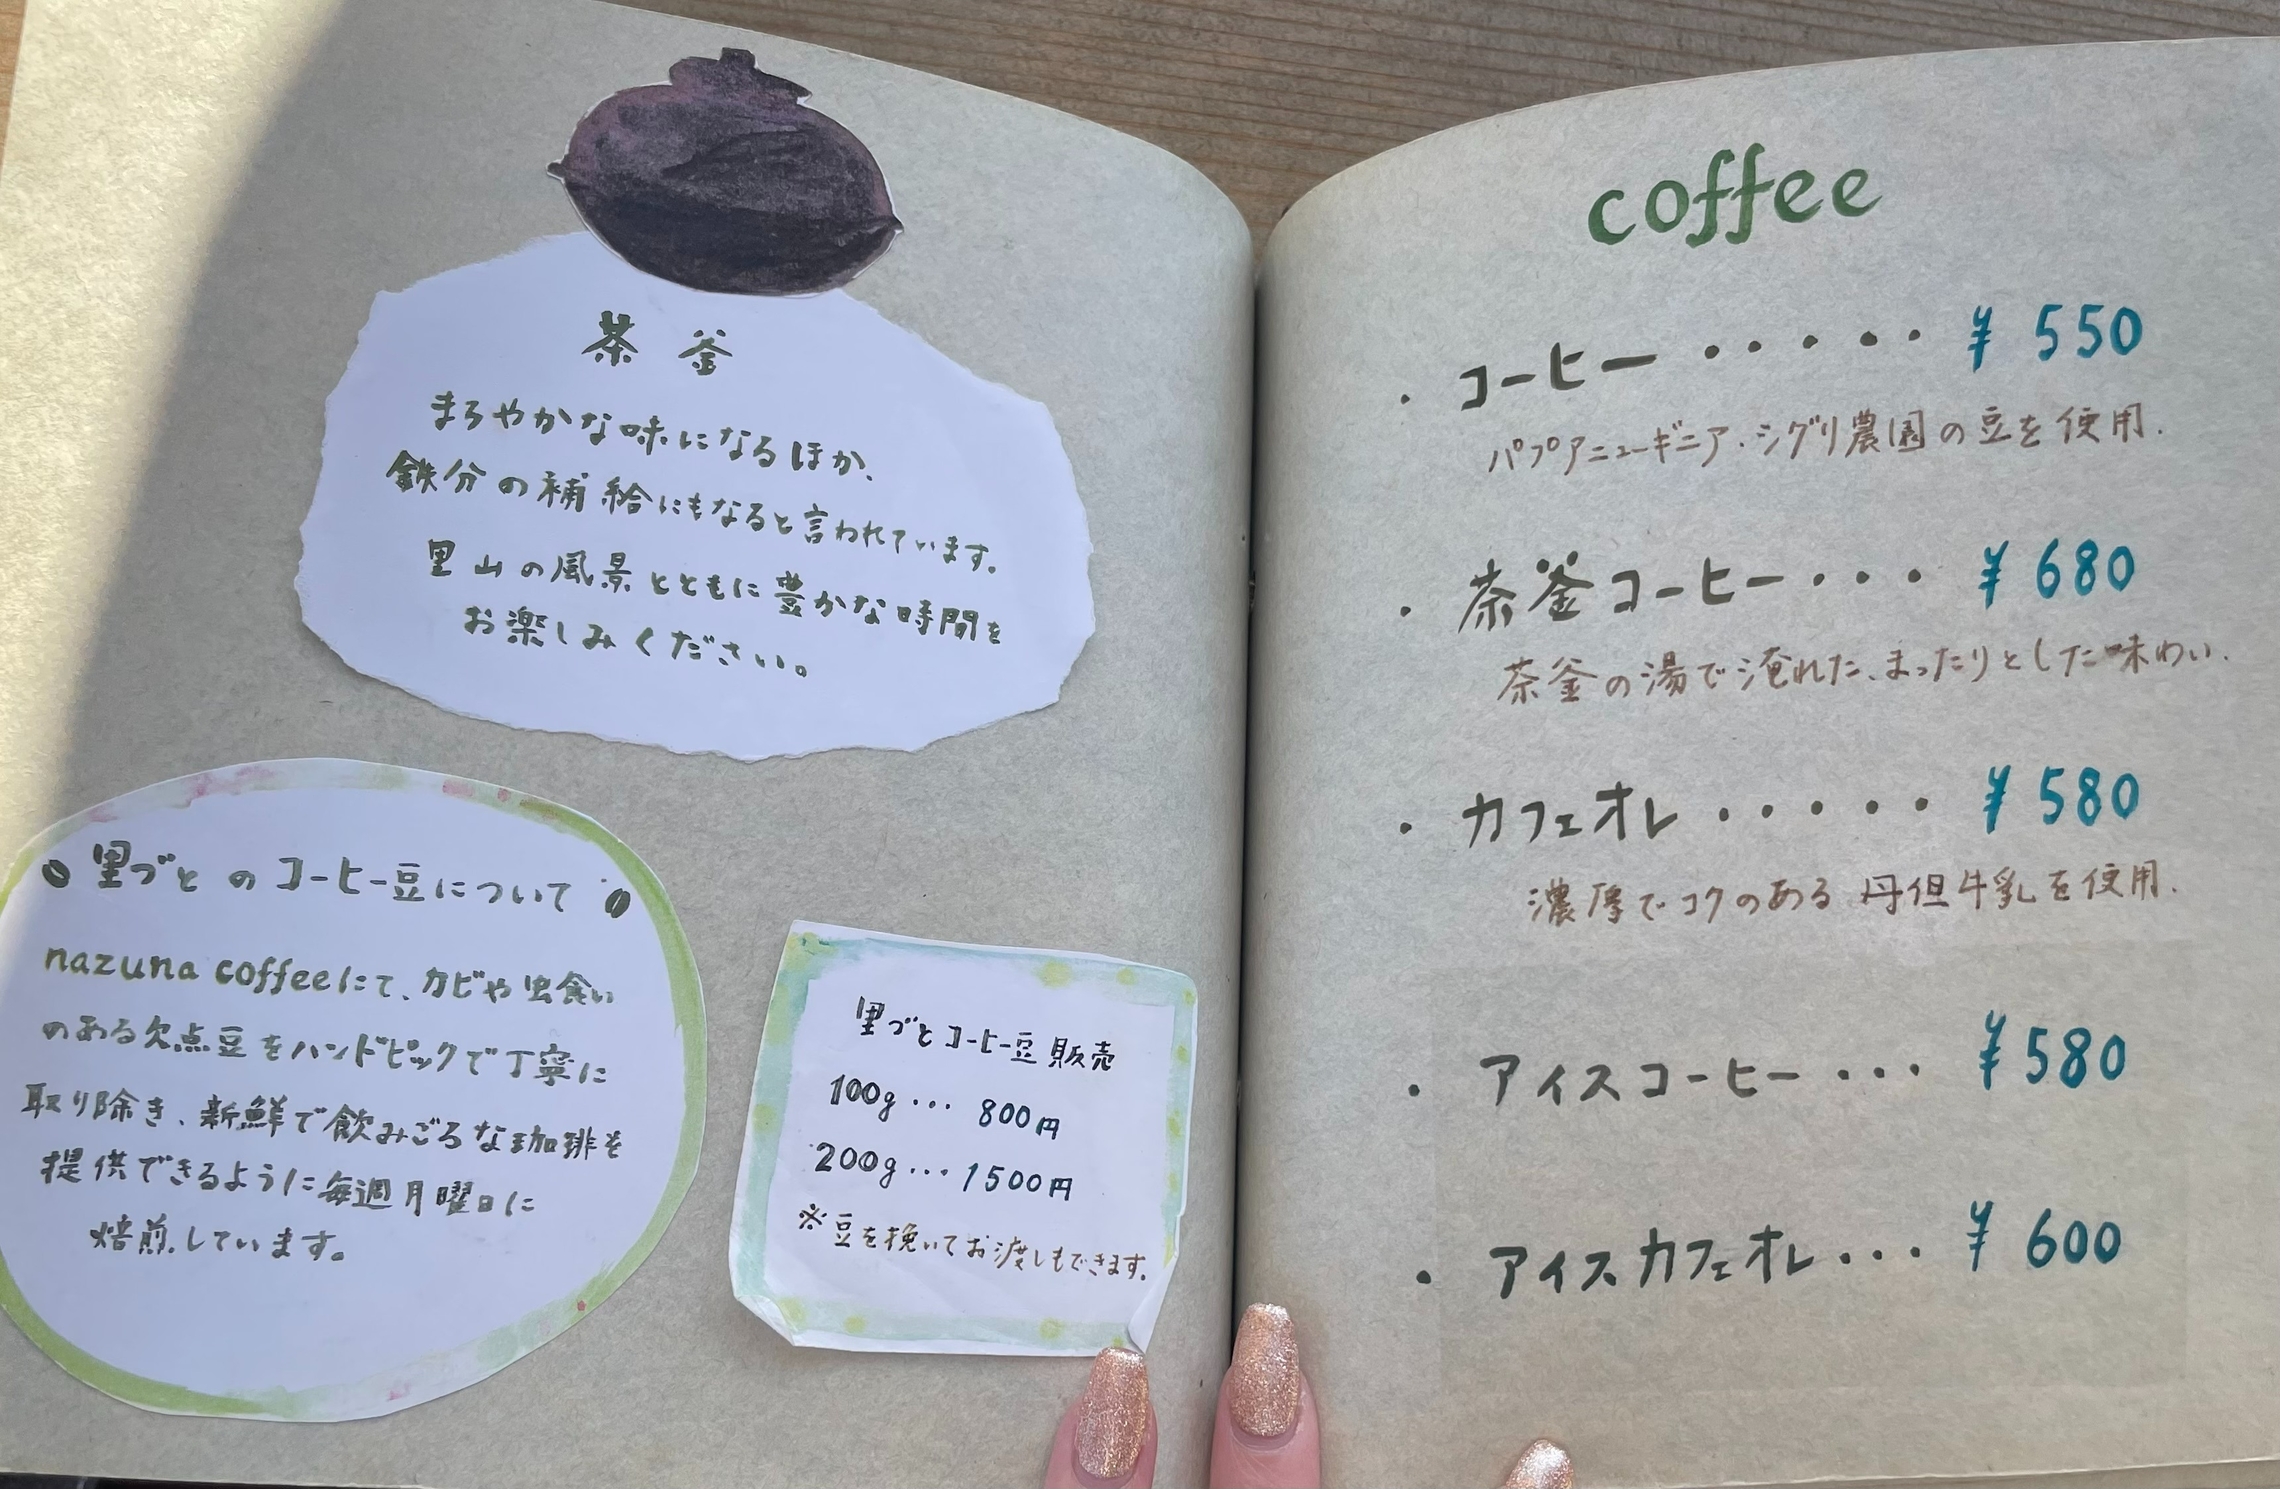 茶釜
まろやかな味になるほか、
鉄分の補給にもなると言われています。
里山の風景とともに豊かな時間を
お楽しみください。
里づと のコーヒー豆について
nazuna coffeeにて、カビや虫食い
のある欠点豆をハンドピックで丁寧に
取り除き、新鮮で飲みごろな珈琲を
提供できるように毎週月曜日に
焙煎しています。
里づとコーヒー豆 販売
100g... 800円
200g... 1500円
※豆を挽いてお渡しもできます。
coffee
・コーヒー・・・・・¥550
パプアニューギニア・シグリ農園の豆を使用.
・茶釜コーヒー・・・¥680
茶釜の湯で淹れた、まったりとした味わい.
・カフェオレ・・・・・¥580
濃厚でコクのある 丹但牛乳を使用.
・アイスコーヒー・・・¥580
・アイスカフェオレ・・・¥600